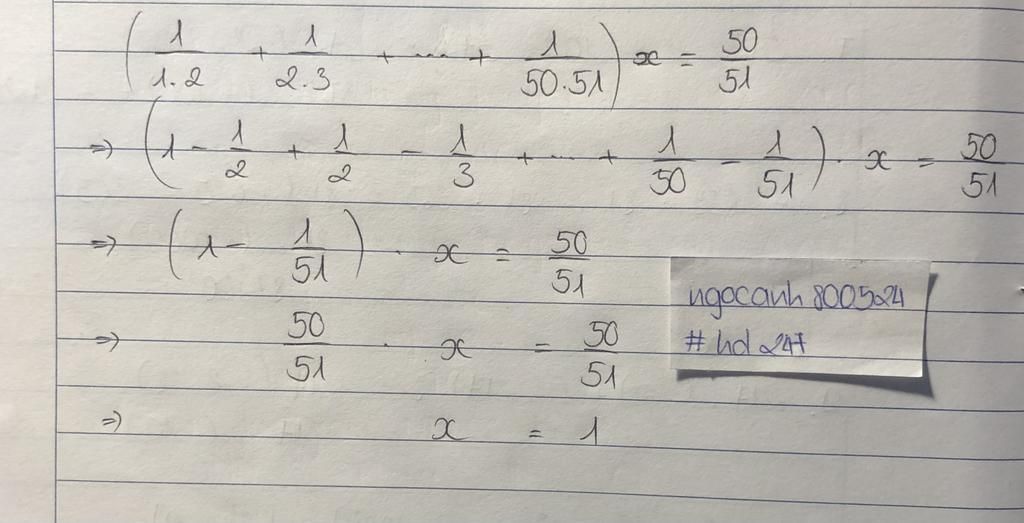 (1/1.2 + 1/2.3 + ... + 1/50.51) x = 50/51
=> (1 - 1/2 + 1/2 - 1/3 + ... + 1/50 - 1/51) . x = 50/51
=> (1 - 1/51) . x = 50/51
=> 50/51 . x = 50/51
=> x = 1
ngocanh8005224
# hd 247